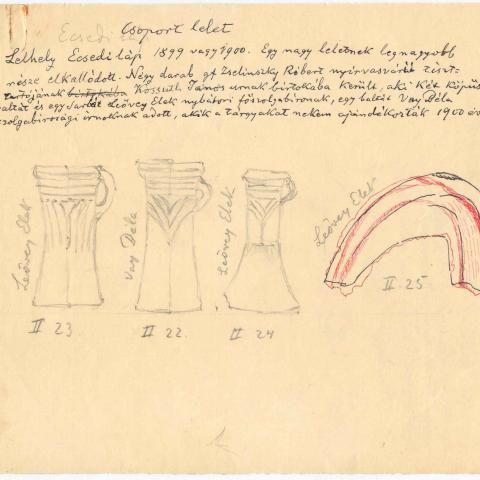 Csoport lelet
Lelhely Ecsedi láp 1899 vagy 1900. Egy nagy leletnek legnagyobb
része elkallódott. Négy darab, gf Zselinszky Róbert nyírvasvári tiszt-
tartójának Kossuth János urnak birtokába került, aki két köpüs
baltát és egy sarlót Leövey Elek nybátori főszolgabironak, egy baltát Vay Béla
szolgabirosági irnoknak adott, akik a tárgyakat nekem ajándékozták 1900 év
Leövey Elek
Vay Béla
Leövey Elek
Leövey Elek
II 23.
II 22.
II 24
II. 25